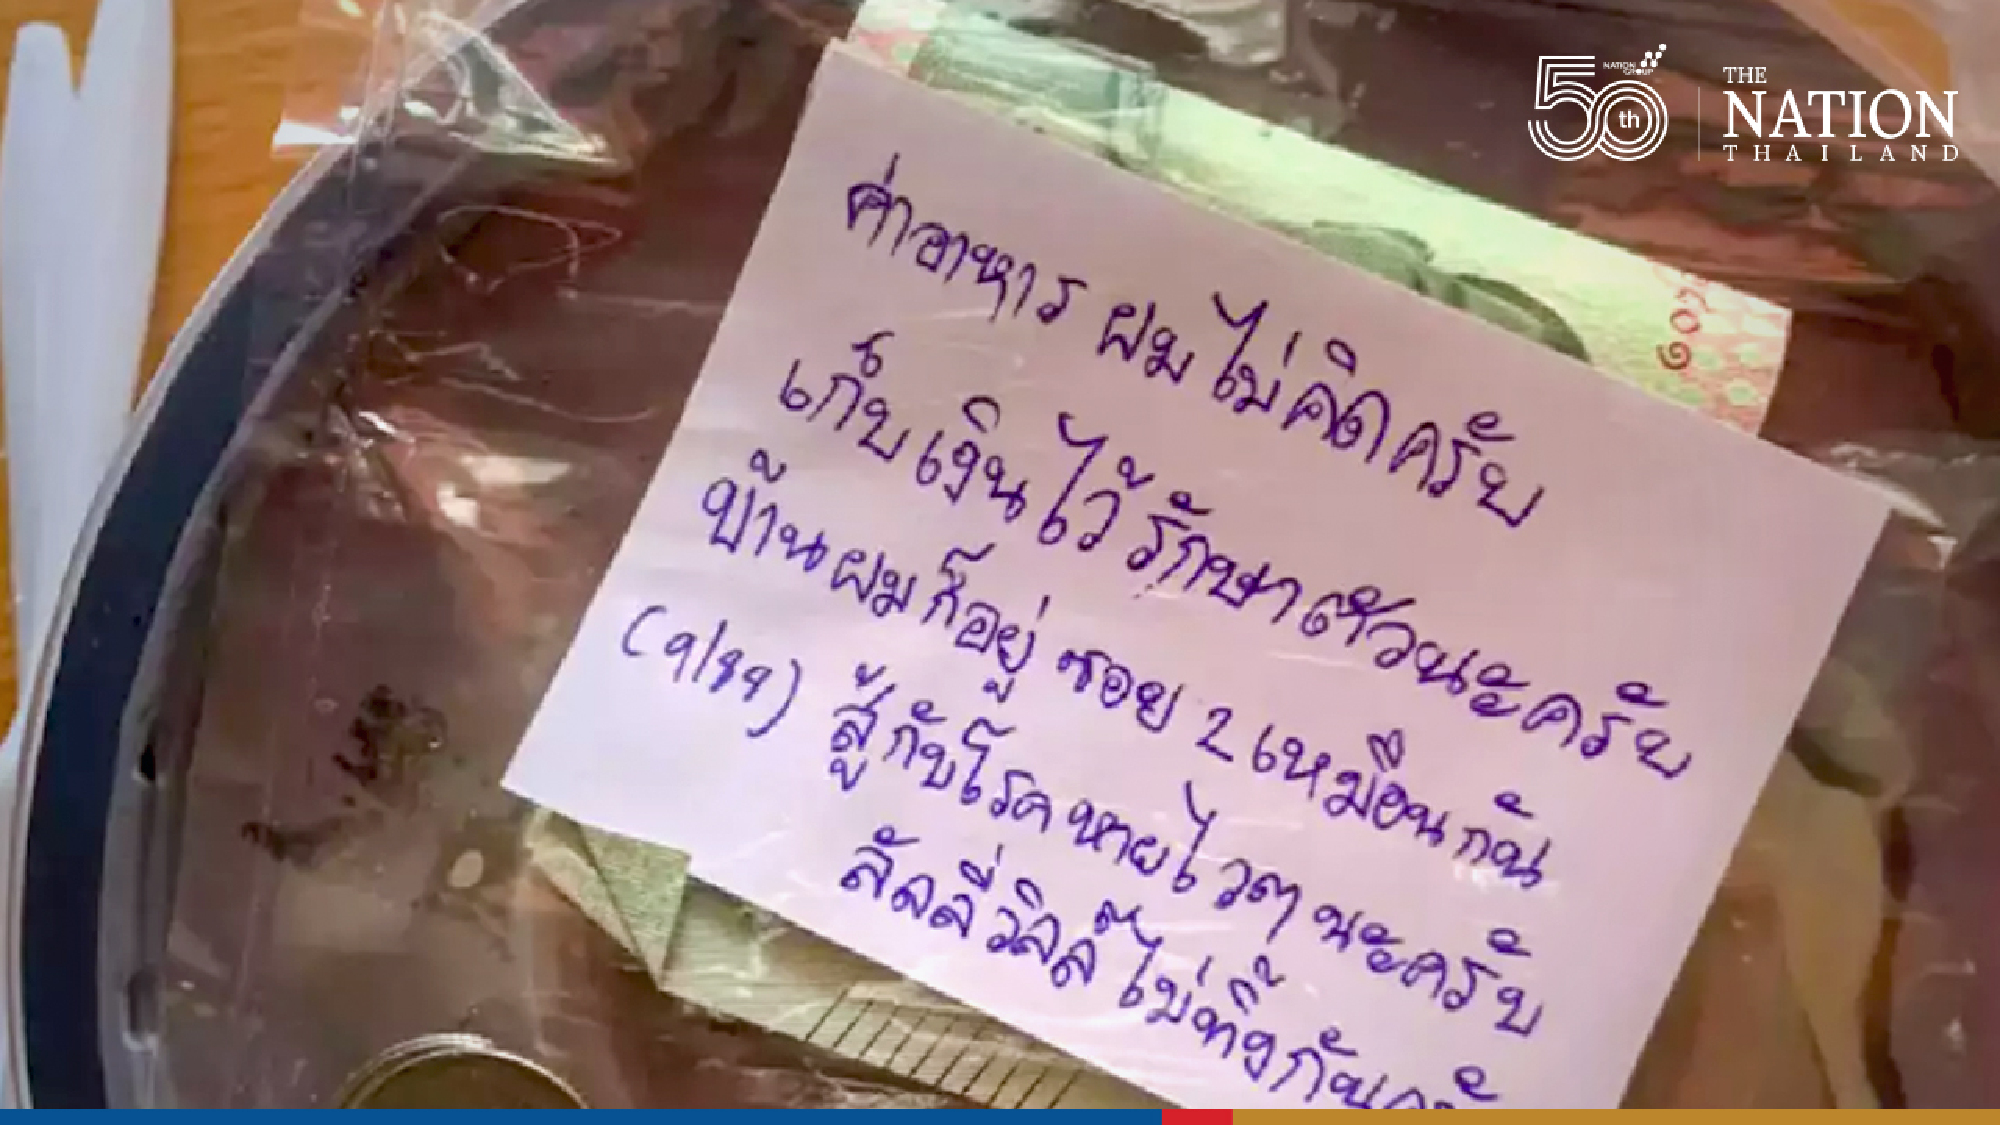 50th
NATION GROUP
THE
NATION
THAILAND
ค่าอาหาร ผมไม่คิดครับ
เก็บเงินไว้รักษาตัวนะครับ
บ้านผมก็อยู่ ซอย 2 เหมือนกัน
สู้กับโรคหายไวๆ นะครับ
ลัลลี่วิลล์ไม่ทิ้งกัน